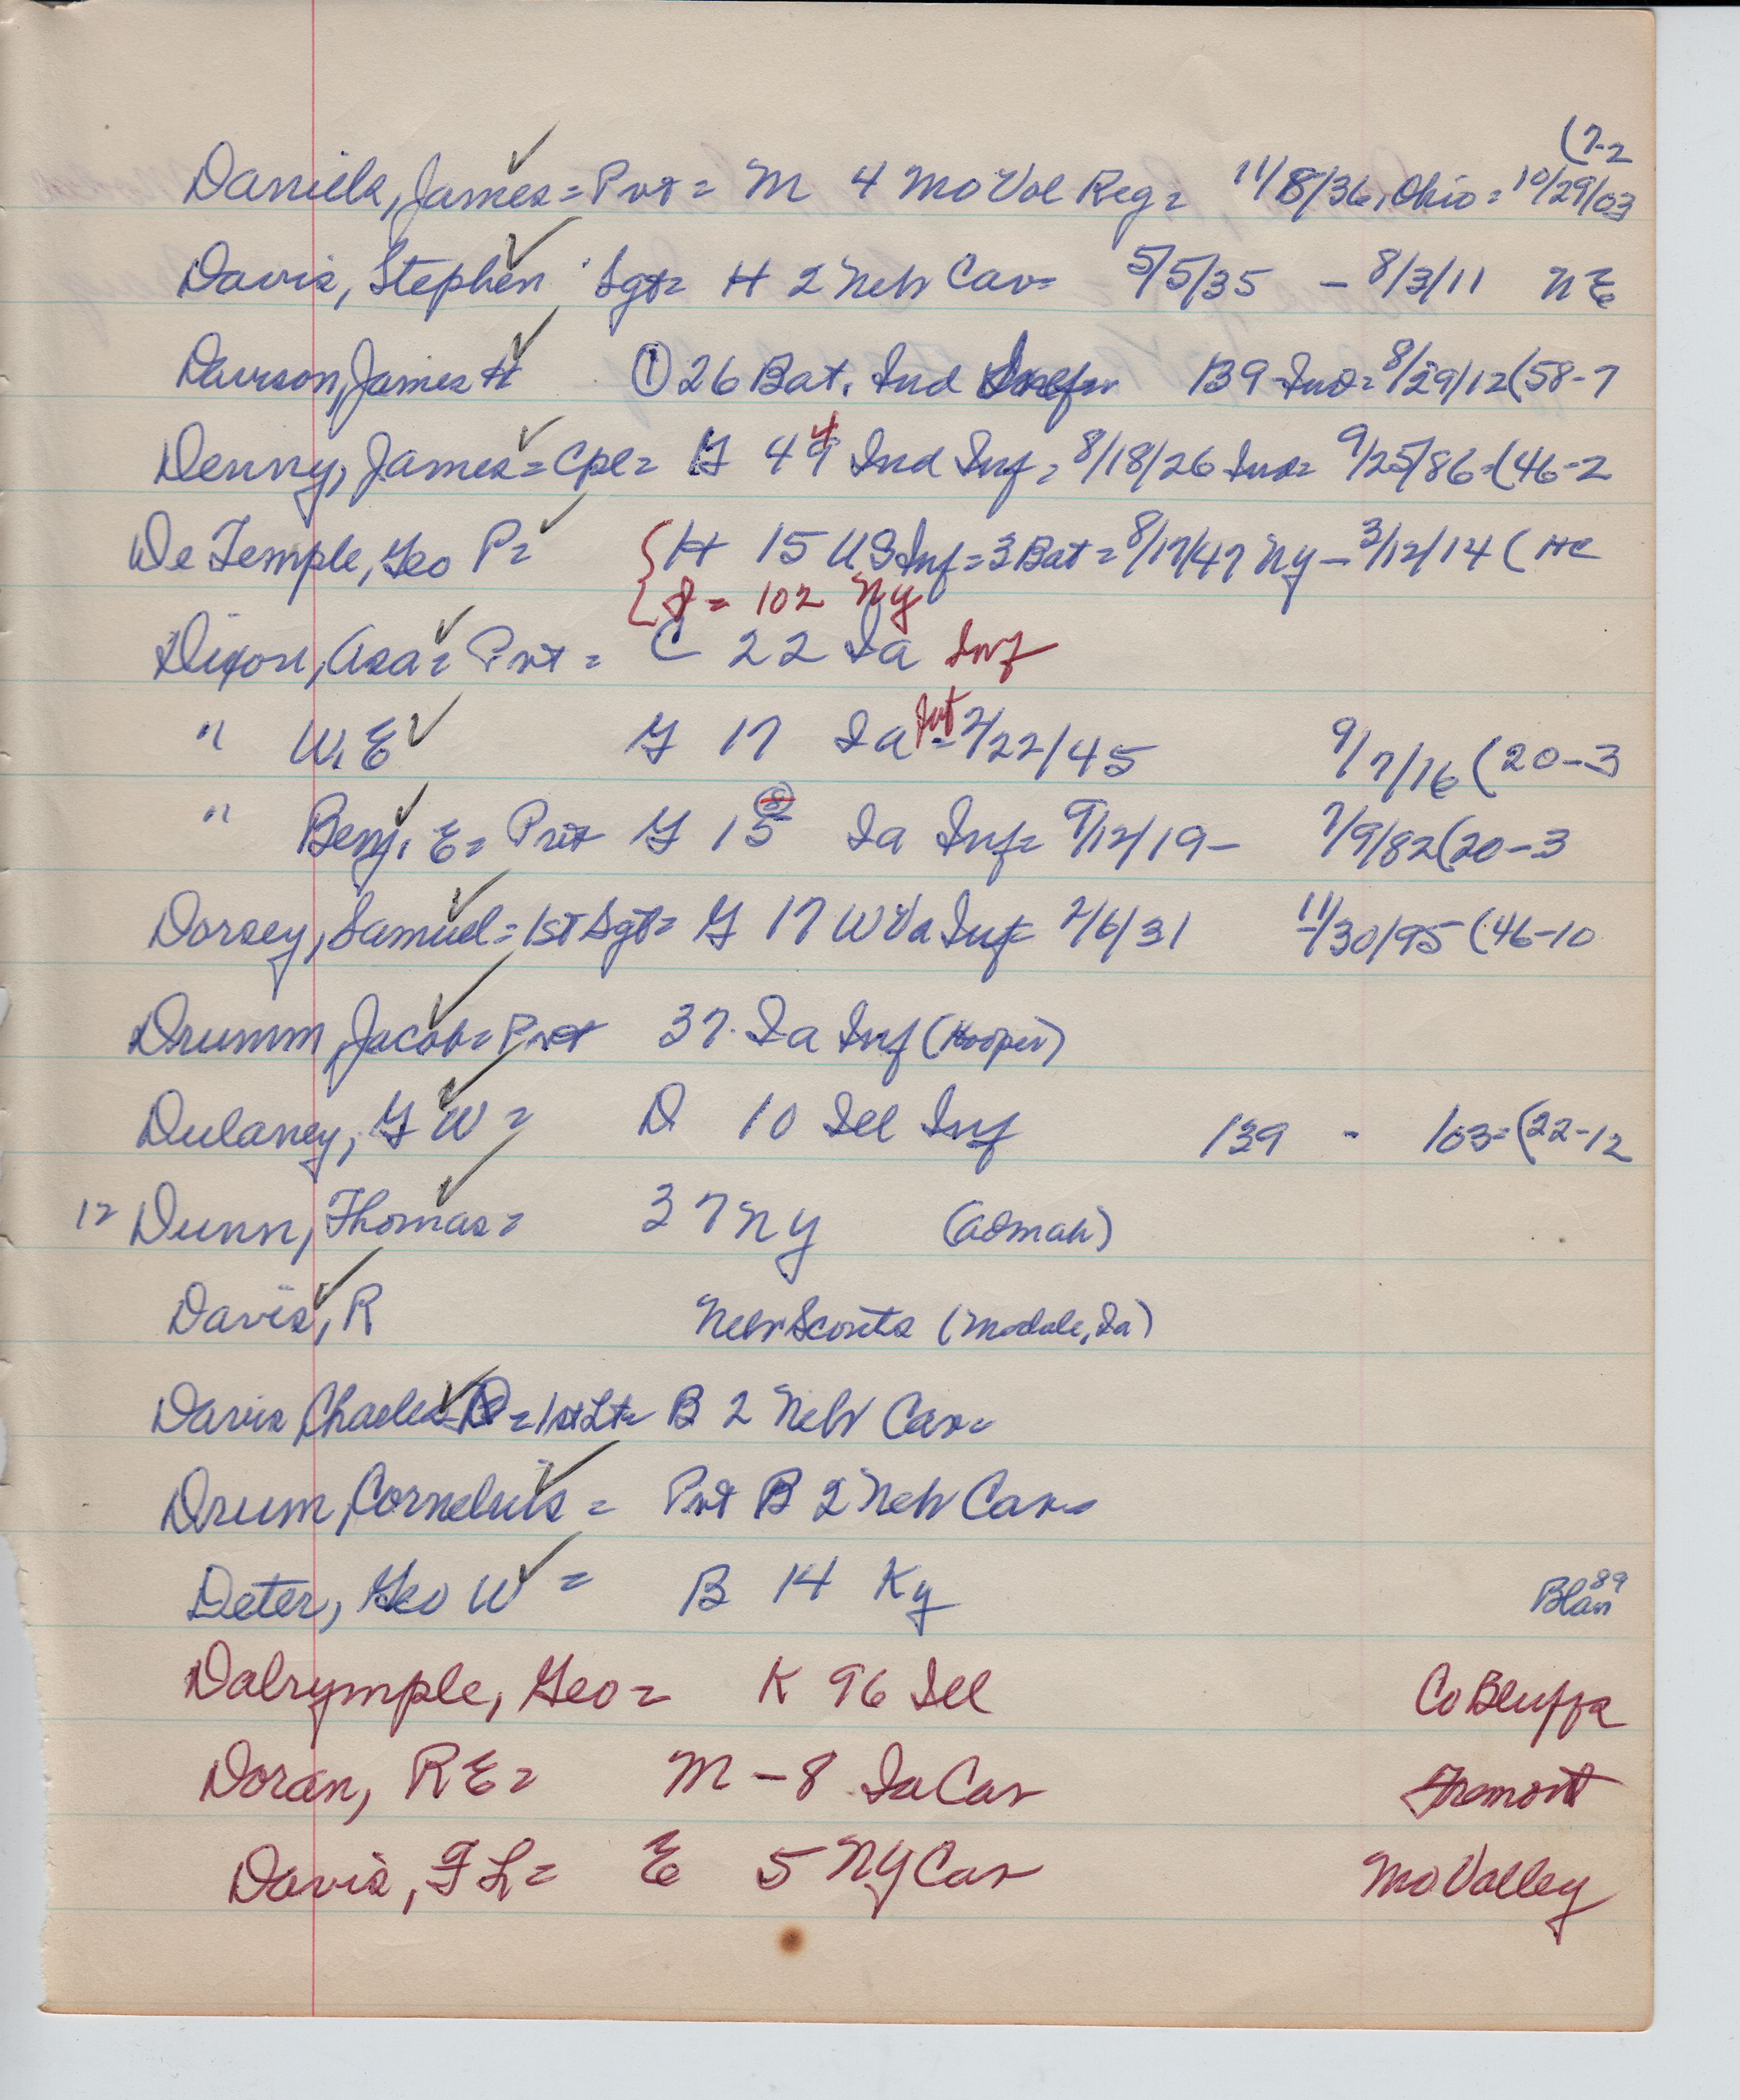 (7-2
Daniels, James = Pvt = M 4 Mo Vol Reg = 11/8/36, Ohio = 10/29/03
Davis, Stephen Sgt = H 2 Neb Cav = 5/5/35 - 8/3/11 NE
Davison, James H ① 26 Bat. Ind B9 Ind = 8/29/12 (58-7
Denny, James = Cpl = G 44 Ind Inf = 8/18/26 Ind = 9/25/86 = (46-2
De Temple, Geo P = { H 15 US Inf = 3 Bat = 8/17/47 Ny - 3/12/14 ( HC
{ I = 102 Ny
Dixon, Asa = Pvt = C 22 Ia Inf
" W. E G 17 Ia Inf = 2/22/45 9/7/16 (20-3
" Benj. E = Pvt G 15 Ia Inf = 9/12/19 - 7/9/82 (20-3
Dorsey, Samuel = 1st Sgt = G 17 W Va Inf = 2/6/31 11/30/95 (46-10
Drumm, Jacob = Pvt 37 Ia Inf (Hooper)
Dulaney, G W = D 10 Ill Inf 139 - 103 = (22-12
12 Dunn, Thomas = 37 Ny (Admah)
Davis, R Nebr Scouts (Modale, Ia)
Davis Charles D = 1st Lt = B 2 Nebr Cav =
Drum, Cornelius = Pvt B 2 Neb Cav =
Deter, Geo W = B 14 Ky Blair 89
Dalrymple, Geo = K 96 Ill Co Bluffs
Doran, R E = M - 8 Ia Cav Fremont
Davis, F L = E 5 NY Cav Mo Valley